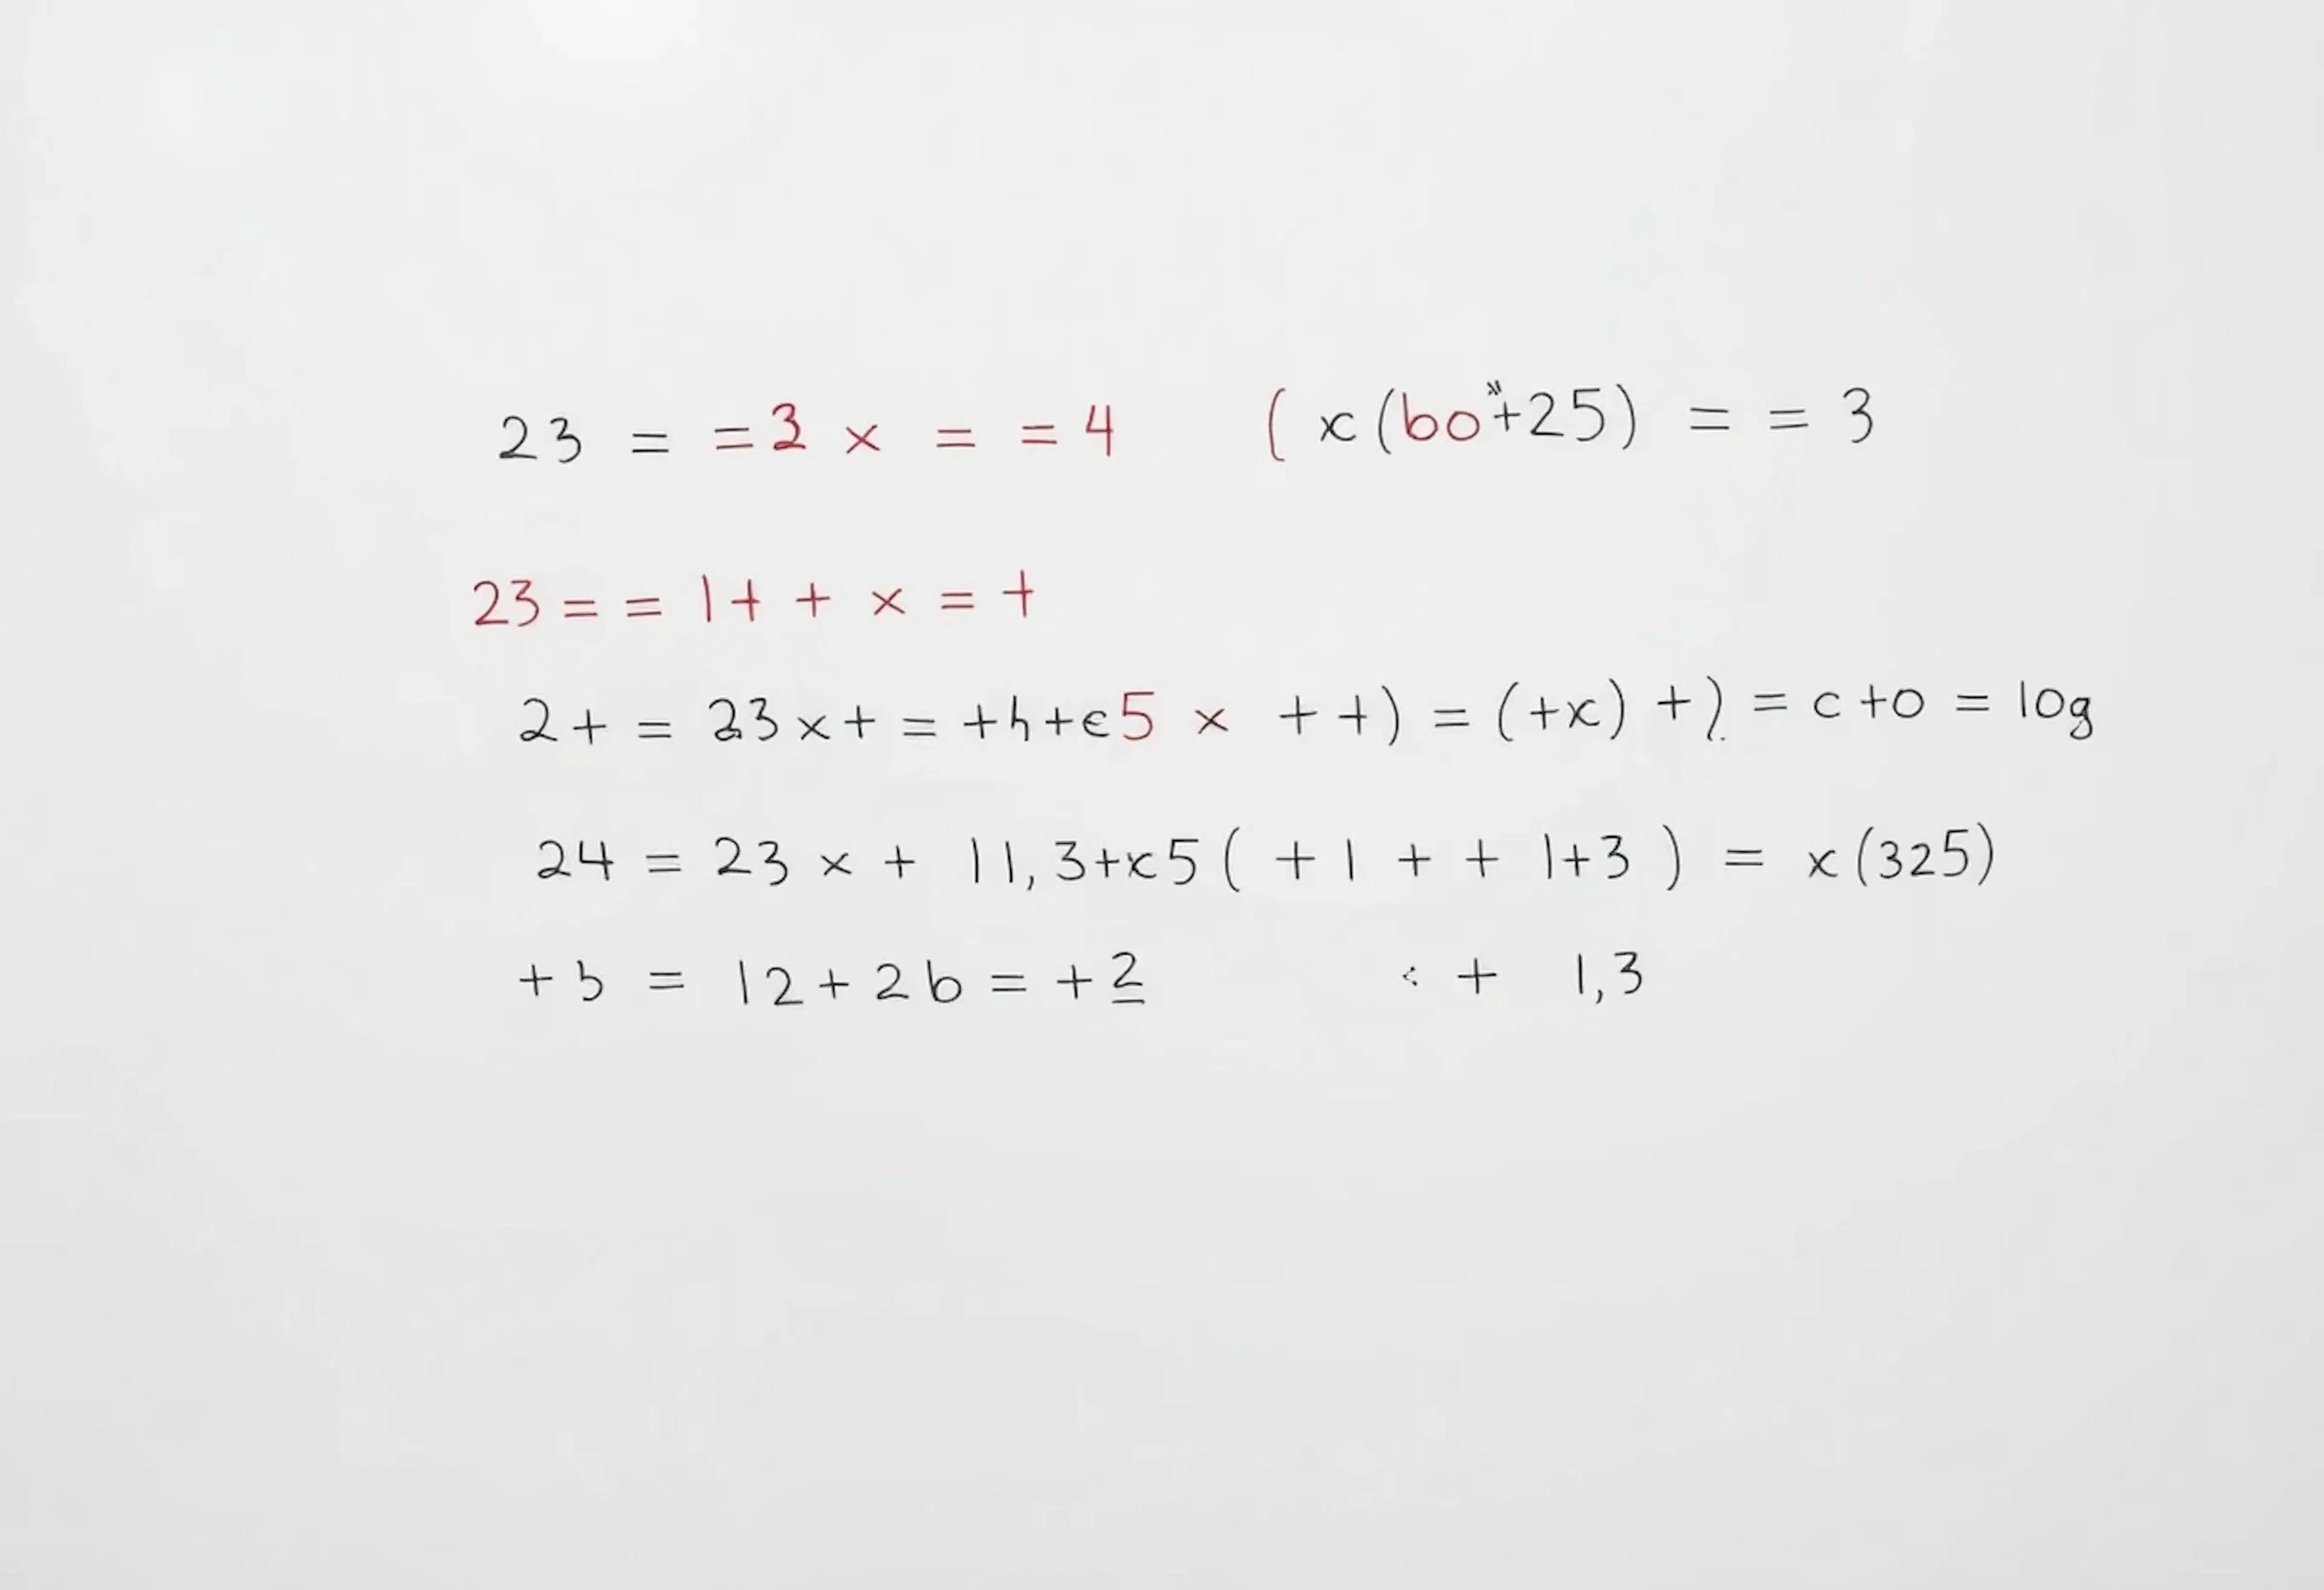 23 = = 3 x = = 4 ( x (bo"+25) = = 3
23 = = 1+ + x = +
2+ = 23 x + = +h+c5 x + +) = (+x) +) = c +0 = log
24 = 23 x + 11,3+x5 ( +1 + + 1+3 ) = x (325)
+ 5 = 12+2b = +2 + 1,3